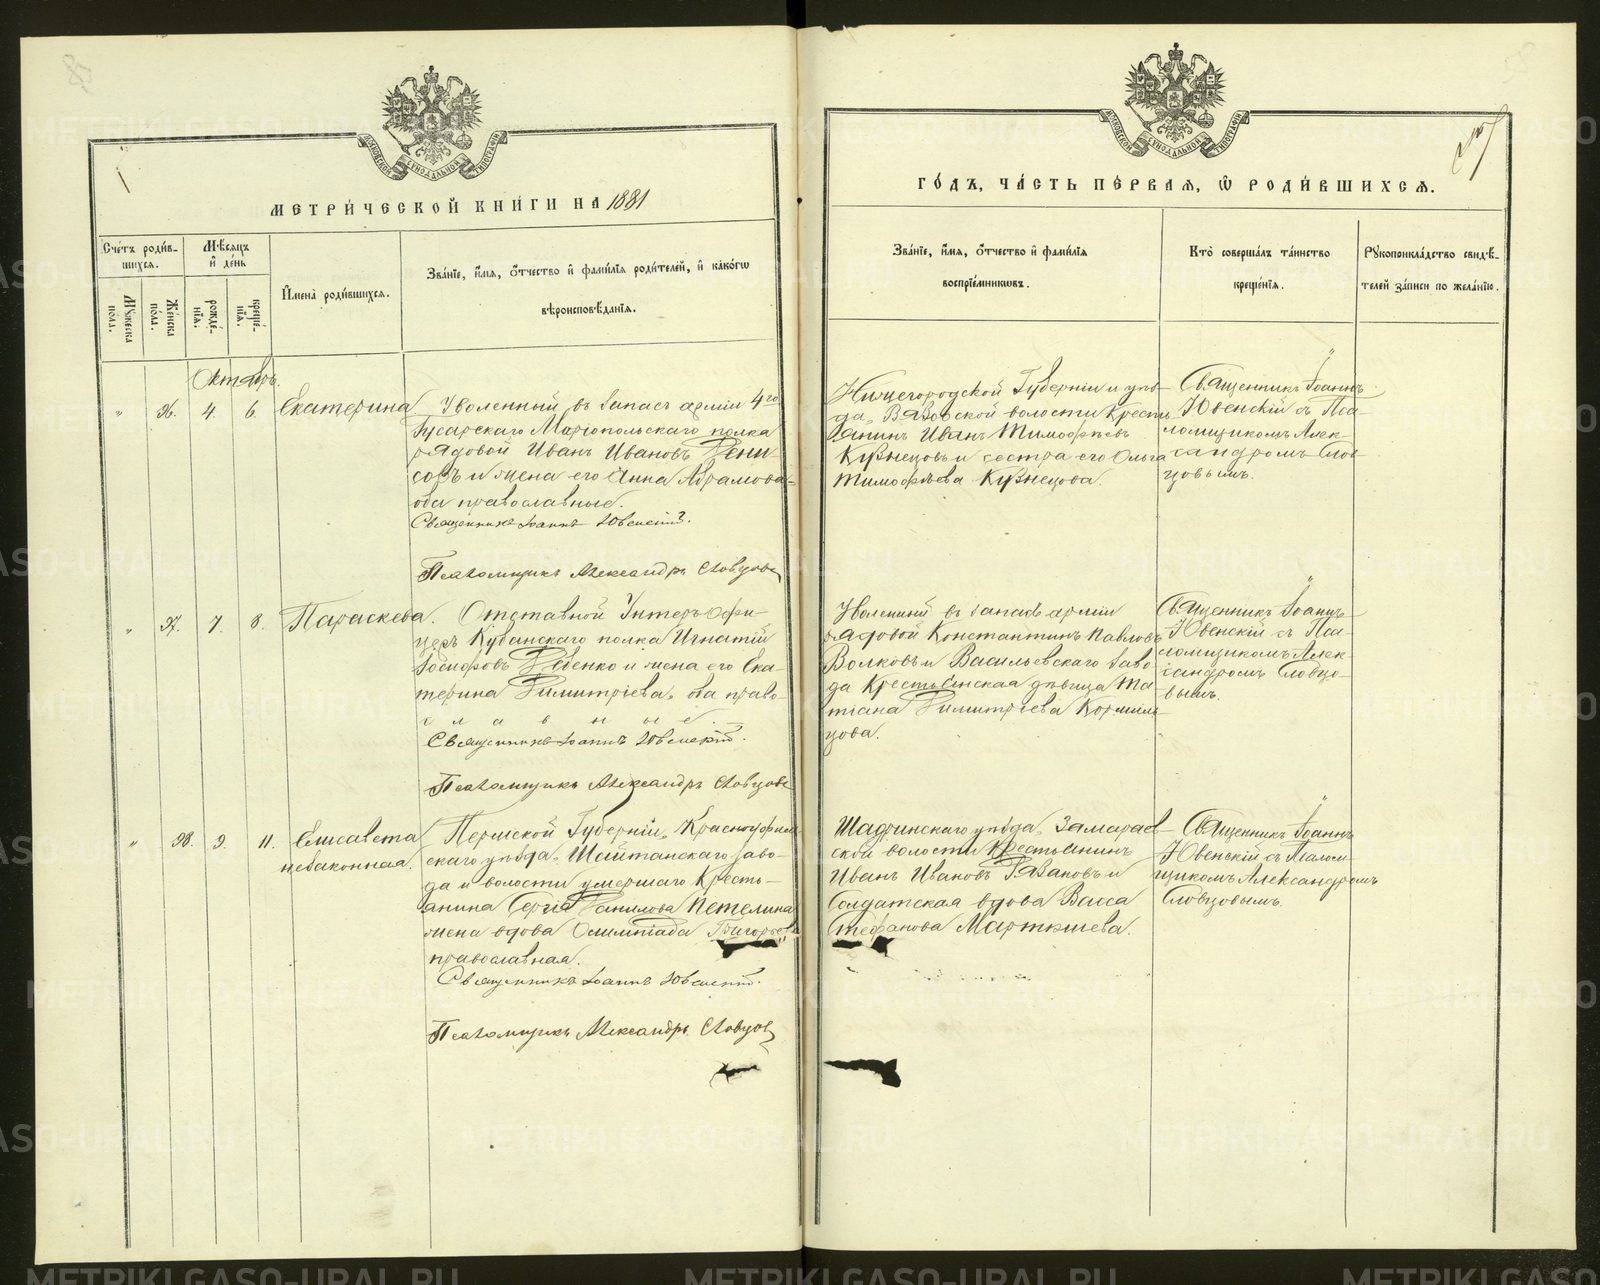 МЕТРИ́ЧЕСКОЙ КНИ́ГИ НА 1881
Сче́тъ роди́в-
шихся.
Мѣ́сяцъ
и҆ де́нь
Му́жеска
по́ла.
Же́нска
по́ла.
рожде́-
нїѧ.
креще́-
нїѧ.
И҆мена̀ роди́вшихся.
Зва́нїе, и҆́мя, ѻ҆́тчество и҆ фами́лїя роди́телей, и҆ како́гѡ
вѣроисповѣ́данїя.
Октябрь.
" 36. 4. 6. Екатерина
Уволенный въ запасъ арміи 4го
Гусарскаго Маріопольскаго полка
рядовой Иванъ Ивановъ Дени-
совъ и жена его Анна Абрамова
оба православные.
Священникъ Іоаннъ Ювенскій.
Псаломщикъ Александръ Словцовъ
" 37. 7. 8. Параскева.
Отставной Унтеръ-Офи-
церъ Кубанскаго полка Игнатій
Іосифовъ Дебенко и жена его Ека-
терина Димитріева, оба право-
славные.
Священникъ Іоаннъ Ювенскій.
Псаломщикъ Александръ Словцовъ
" 38. 9. 11. Елисавета
незаконная.
Пермской Губерніи, Красноуфим
скаго уѣзда, Шайтанскаго заво-
да и волости умершаго Кресть-
янина Сергія Данилова Петелина
жена вдова Олимпіада Григорьева
православная.
Священникъ Іоаннъ Ювенскій.
Псаломщикъ Александръ Словцовъ
МОСКОВСКОЙ СѴНОДАЛЬНОЙ ТИПОГРАФІИ
ГО́ДЪ, ЧА́СТЬ ПЕ́РВАЯ, Ѡ҆ РОДИ́ВШИХСЯ.
Зва́нїе, и҆́мя, ѻ҆́тчество и҆ фами́лїя
воспрїе́мникѡвъ.
Кто̀ соверша́лъ та́инство
креще́нїя.
Рукоприкла́дство свидѣ́-
телей за́писи по жела́нїю.
Нижегородской Губерніи и уѣз-
да, Вязовской волости Кресть
янинъ Иванъ Тимофѣевъ
Кузнецовъ и сестра его Ольга
Тимофѣева Кузнецова.
Священникъ Іоаннъ
Ювенскій съ Пса-
ломщикомъ Алек-
сандромъ Слов
цовымъ.
Уволенный въ запасъ арміи
рядовой Константинъ Павловъ
Волковъ и Васильевскаго заво-
да Крестьянская дѣвица Та
тіана Димитріева Кормиль
цова.
Священникъ Іоаннъ
Ювенскій съ Пса-
ломщикомъ Алек-
сандромъ Словцо-
вымъ.
Шадринскаго уѣзда, Замараев-
ской волости Крестьянинъ
Иванъ Ивановъ Рязановъ и
Солдатская вдова Васса
Стефанова Мартюшева.
Священникъ Іоаннъ
Ювенскій съ Псалом
щикомъ Александромъ
Словцовымъ.
METRIKI.GASO-URAL.RU